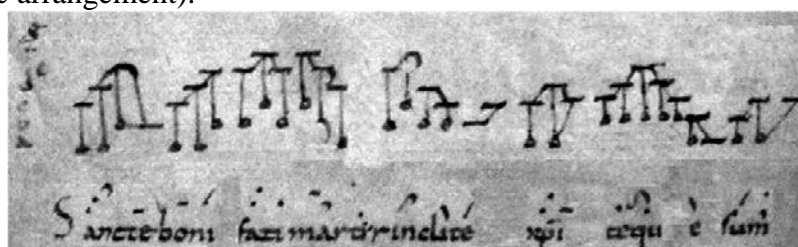 e arrangement):
Sancte boni fati martir inclite xpi tequi e sum